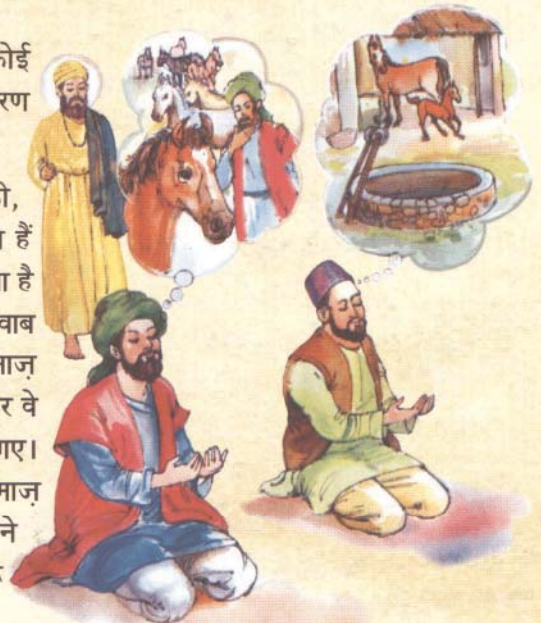 कोई
रण
हैं
है
वाब
माज़
र वे
गए।
माज़
ने